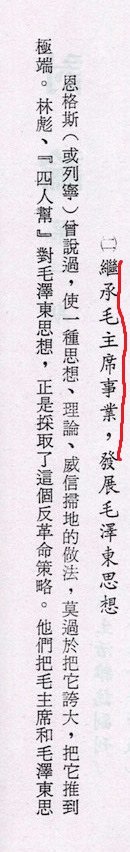 ㈡繼承毛主席事業，發展毛澤東思想
恩格斯（或列寧）曾說過，使一種思想、理論、威信掃地的做法，莫過於把它誇大，把它推到
極端。林彪、『四人幫』對毛澤東思想，正是採取了這個反革命策略。他們把毛主席和毛澤東思